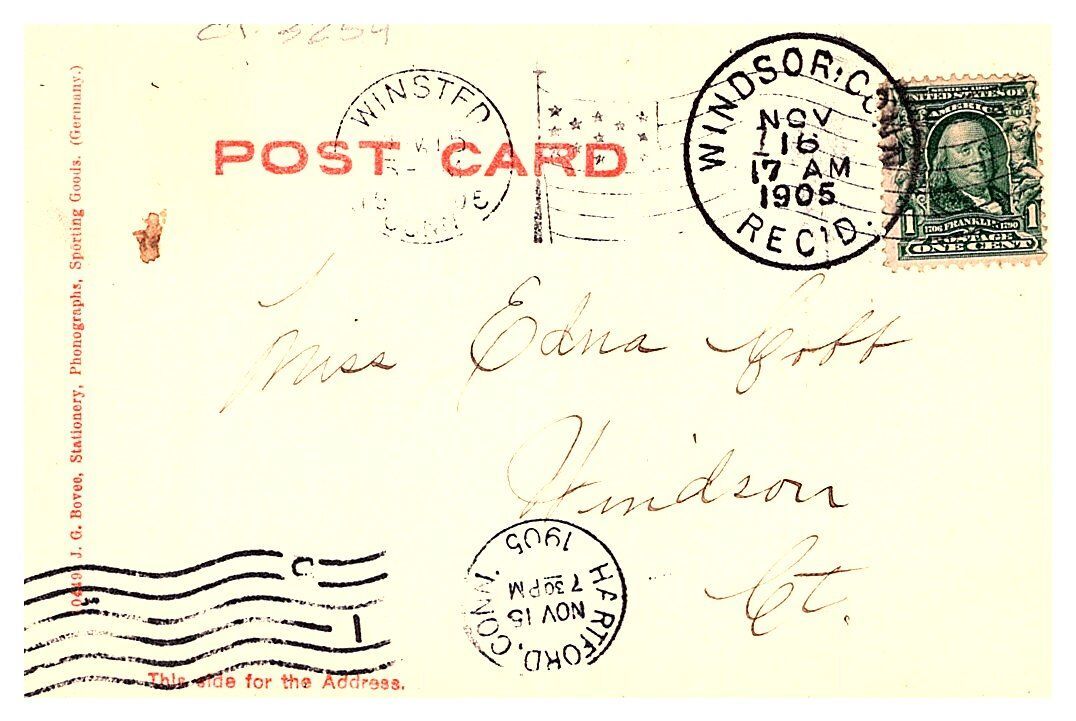 Ct. 3254
WINSTED
CONN
POST CARD
WINDSOR, CONN.
NOV
16
17 AM
1905
REC'D.
UNITED STATES OF
AMERICA
1 1706 FRANKLIN 1790 1
POSTAGE
ONE CENT
0449 J. G. Bovee, Stationery, Phonographs, Sporting Goods. (Germany.)
Miss Edna Cobb
Windsor
Ct.
HARTFORD, CONN.
NOV 15
7 30 PM
1905
C
1
This side for the Address.